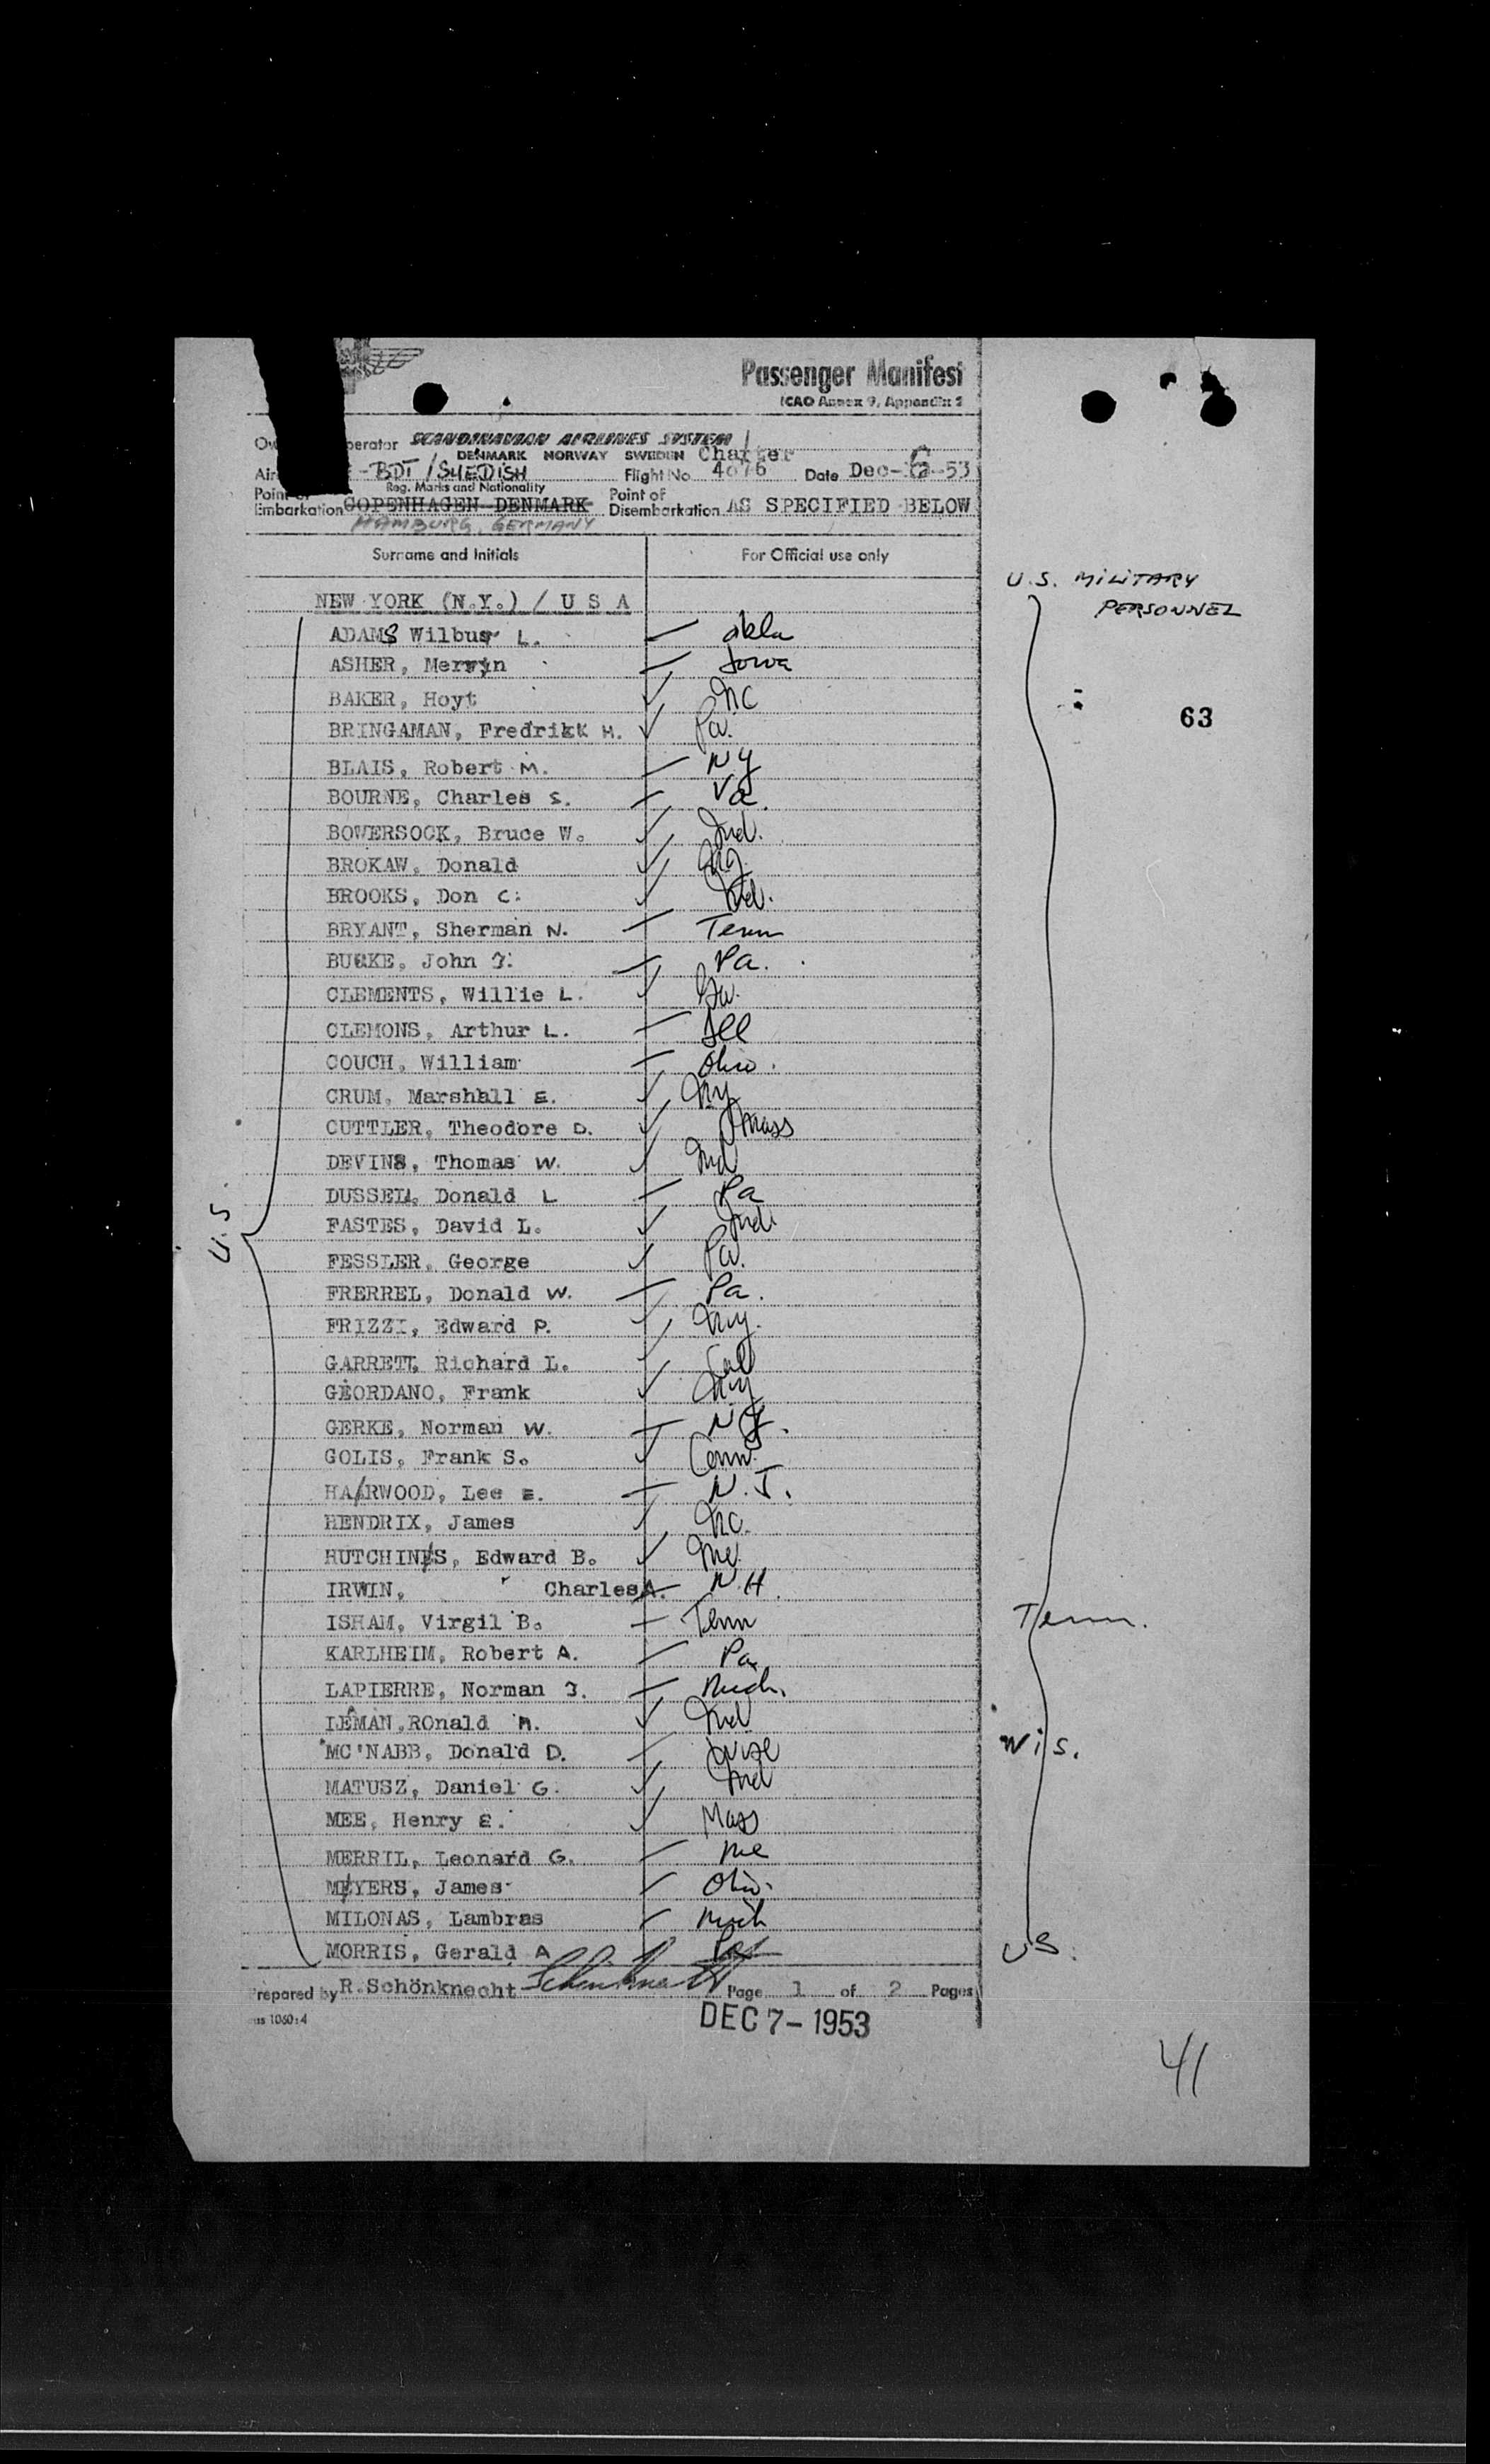 Passenger Manifest
ICAO Annex 9, Appendix 2
perator SCANDINAVIAN AIRLINES SYSTEM
DENMARK NORWAY SWEDEN Charter
-BDT / SWEDISH Flight No. 4076 Date Dec- -53
Reg. Marks and Nationality
Point of Embarkation COPENHAGEN DENMARK Point of Disembarkation AS SPECIFIED BELOW
HAMBURG, GERMANY
Surname and Initials For Official use only
U.S. MILITARY PERSONNEL
NEW YORK (N.Y.) / U S A
ADAMS Wilbur L. Okla
ASHER, Mervin Iowa
BAKER, Hoyt NC
63
BRINGAMAN, Fredrikk H. Pa.
BLAIS, Robert M. NY
BOURNE, Charles S. Va.
BOWERSOCK, Bruce W. Ind.
BROKAW, Donald
BROOKS, Don C.
BRYANT, Sherman N. Tenn
BURKE, John J. Pa.
CLEMENTS, Willie L.
CLEMONS, Arthur L. Ill
COUCH, William Ohio.
CRUM, Marshall E. Ny
CUTTLER, Theodore D. Mass
DEVINS, Thomas W.
DUSSEL, Donald L Pa
FASTES, David L. Ind.
FESSLER, George Pa.
FRERREL, Donald W. Pa.
FRIZZI, Edward P. Ny.
GARRETT, Richard L. Cal
GEORDANO, Frank Ny
U.S.
GERKE, Norman W. NY.
GOLIS, Frank S. Conn.
HARWOOD, Lee E. N.J.
HENDRIX, James NC.
HUTCHINS, Edward B. Me.
IRWIN, Charles A. N.H.
ISHAM, Virgil B. Tenn Tenn.
KARLHEIM, Robert A. Pa
LAPIERRE, Norman J. Mich.
LEMAN, ROnald
MC'NABB, Donald D. Wisc Wis.
MATUSZ, Daniel G.
MEE, Henry E. Mass
MERRIL, Leonard G. Me
MEYERS, James Ohio.
MILONAS, Lambras Mich
MORRIS, Gerald A Pa US.
repared by R.Schönknecht Page 1 of 2 Pages
us 1060:4
DEC 7-1953
41